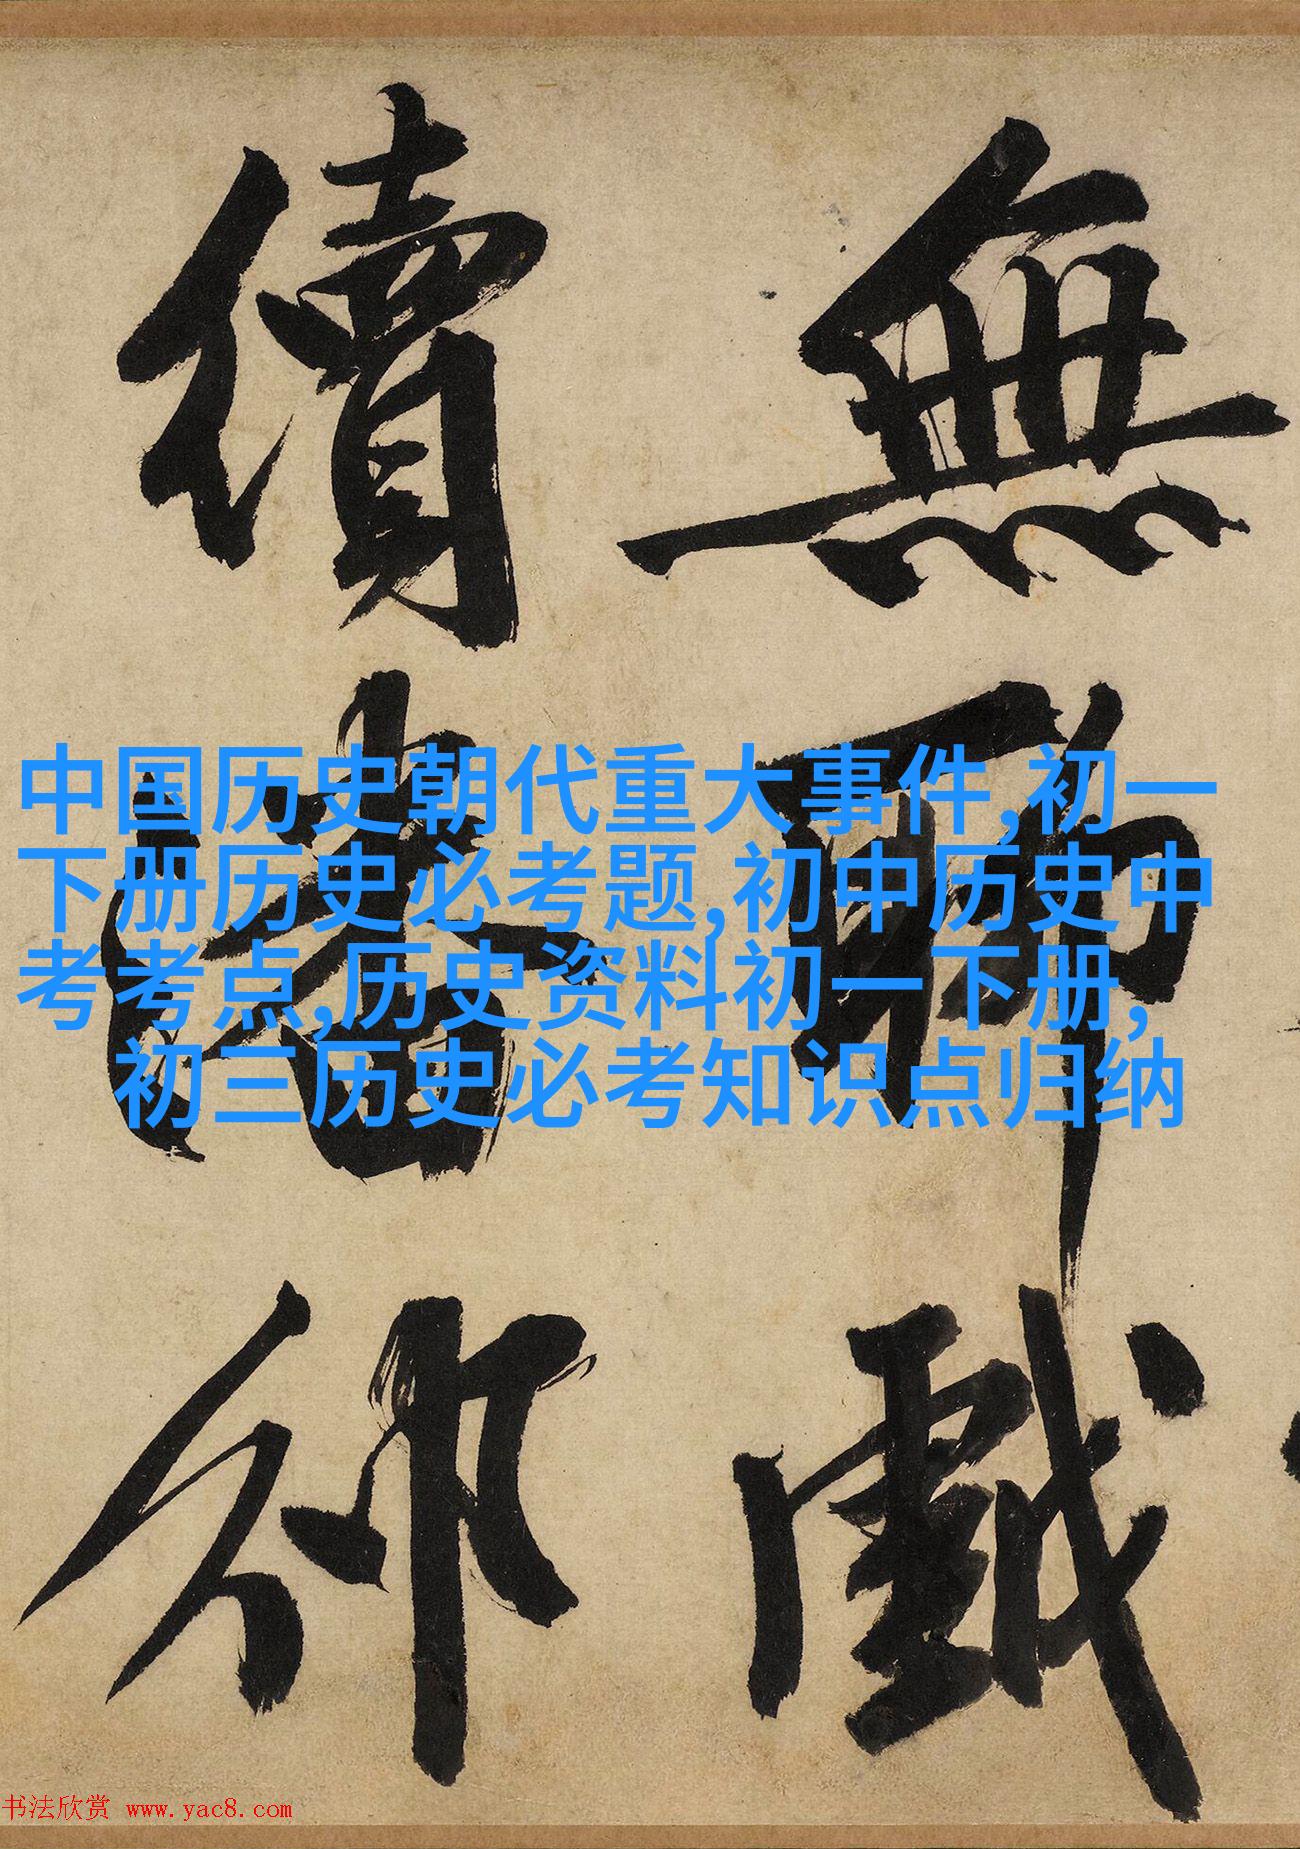 無聊戲
續書邠
中国历史朝代重大事件,初一
下册历史必考题,初中历史中
考考点,历史资料初一下册,
初三历史必考知识点归纳
书法欣赏 www.yac8.com